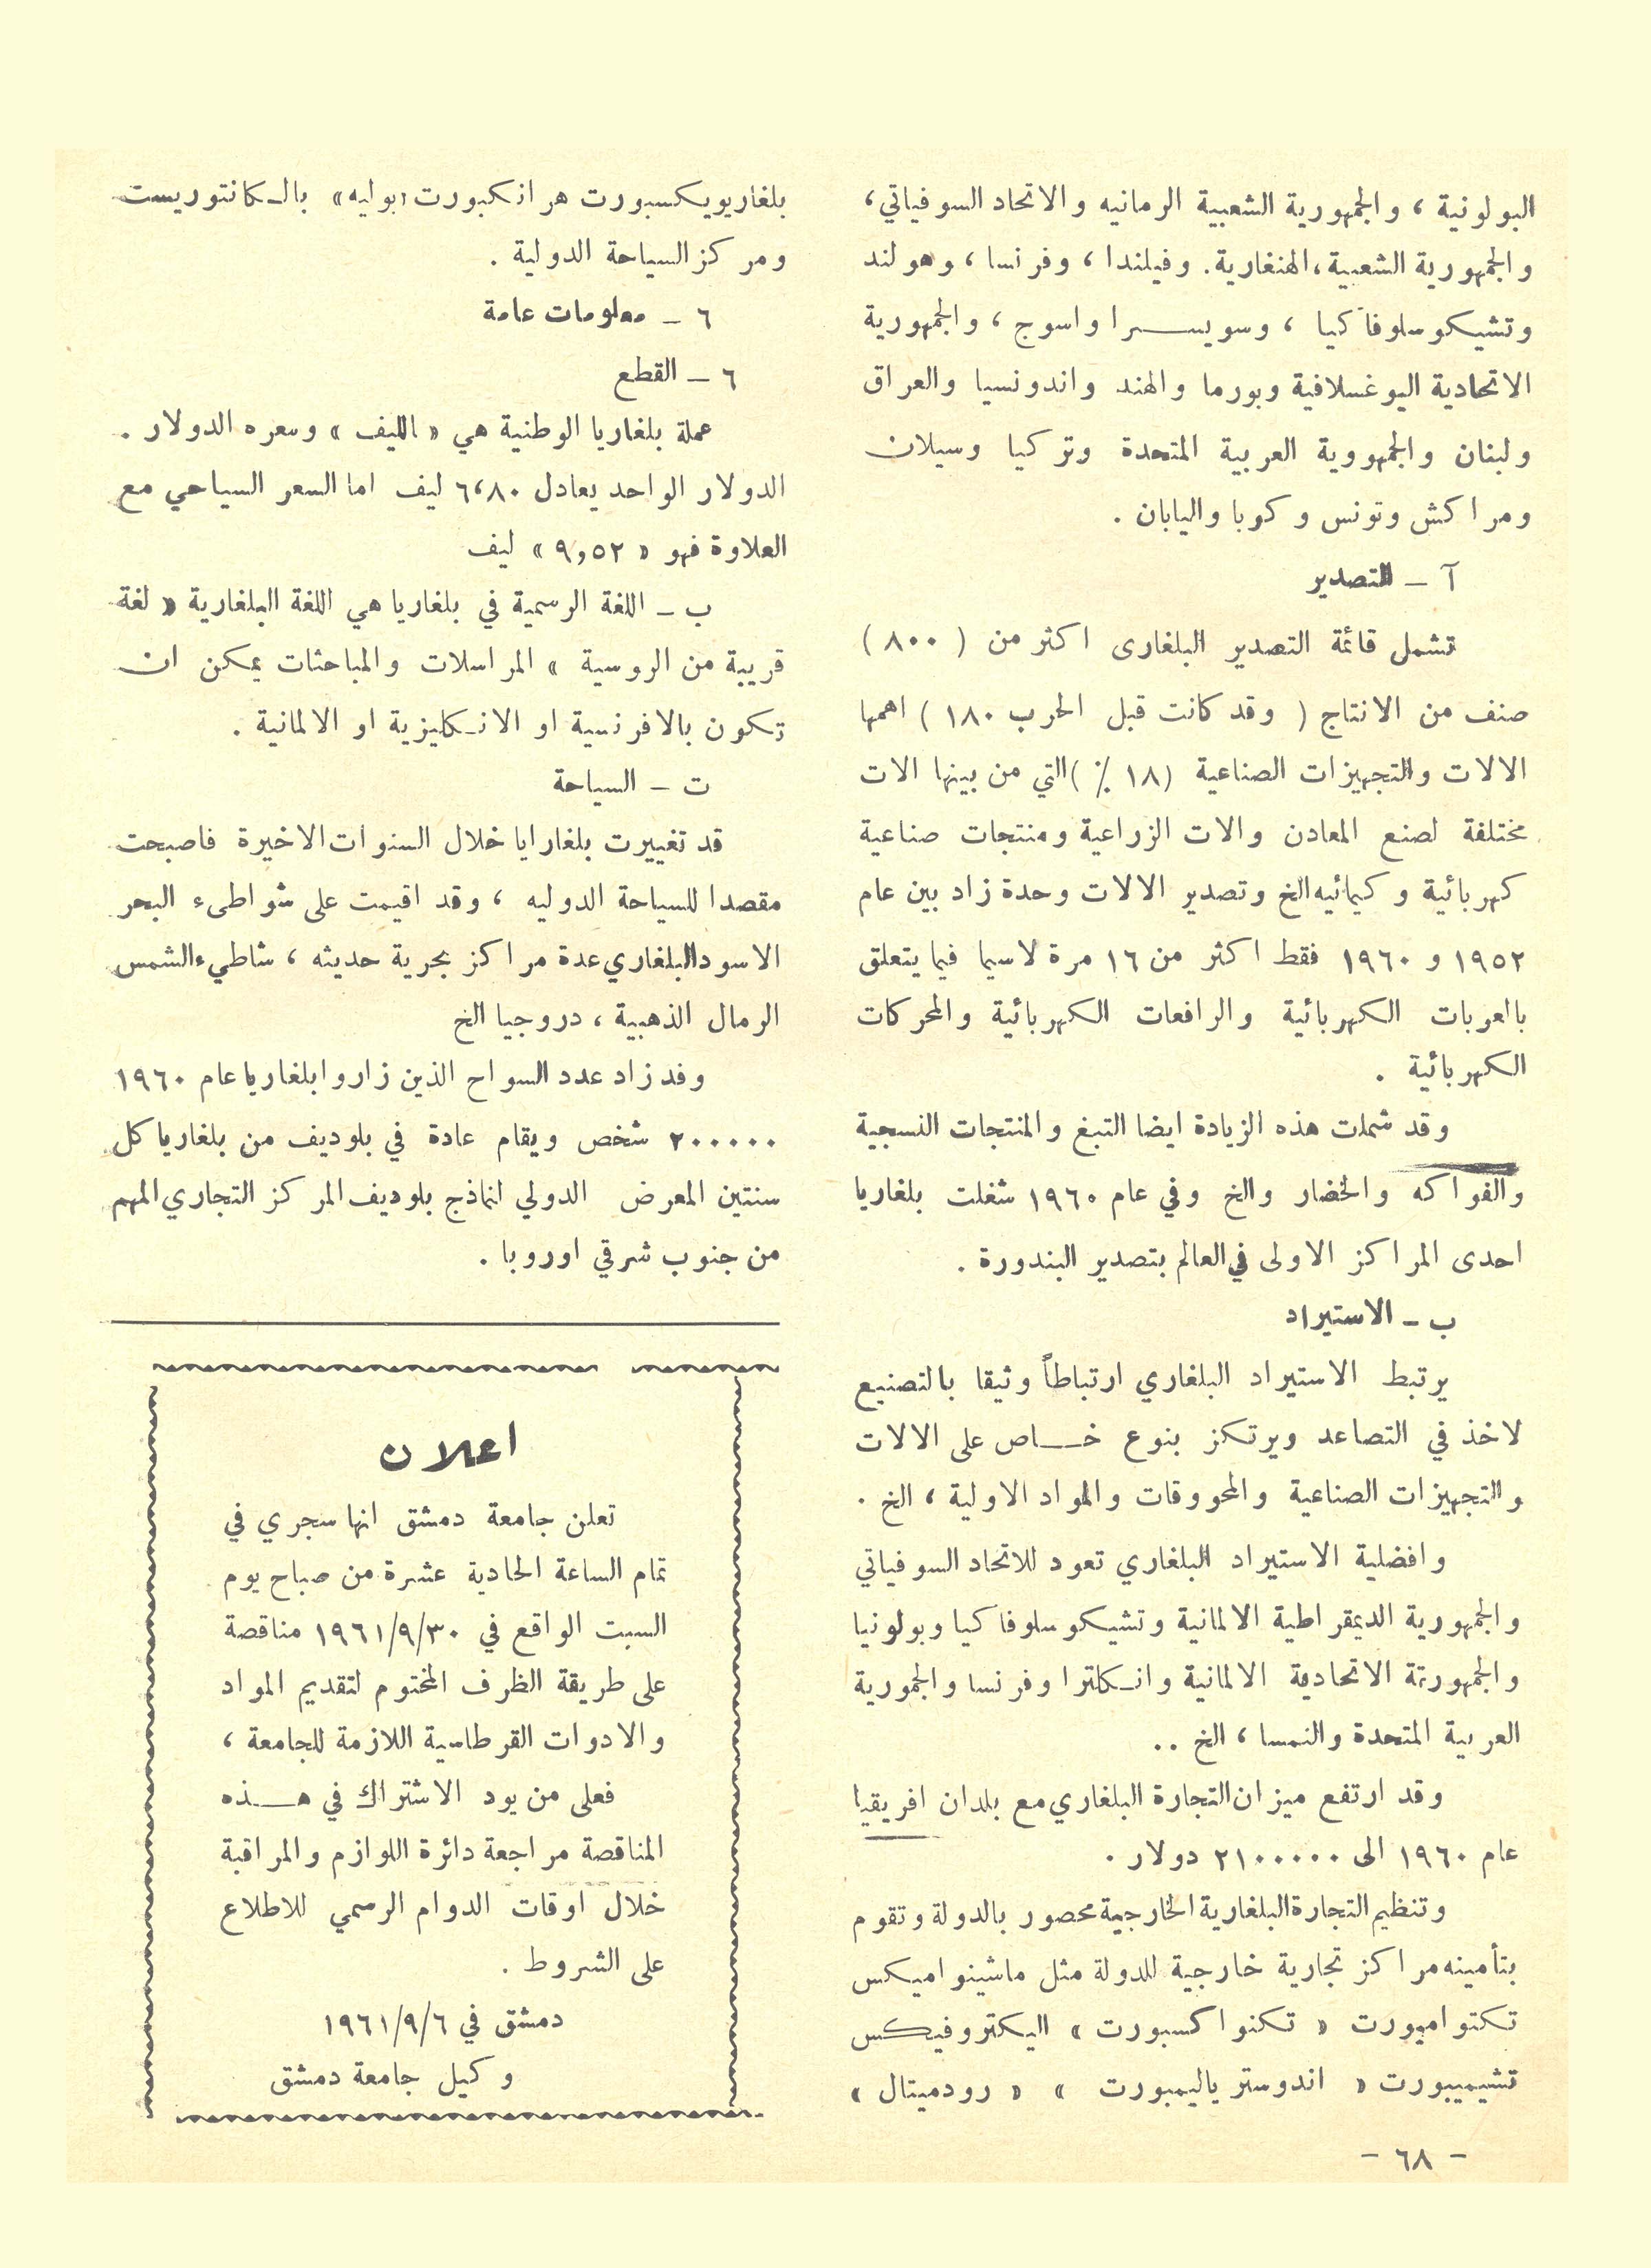 البولونية ، والجمهورية الشعبية الرمانيه والاتحاد السوفياتي ،
والجمهورية الشعبية ، الهنغارية . وفيلندا ، وفرنسا ، وهولند
وتشيكوسلوفاكيا ، وسويسرا واسوج ، والجمهورية
الاتحادية اليوغسلافية وبورما والهند واندونسيا والعراق
ولبنان والجمهووية العربية المتحدة وتركيا وسيلان
ومراكش وتونس وكوبا واليابان .
آ – التصدير
تشمل قائمة التصدير البلغارى اكثر من ( ٨٠٠ )
صنف من الانتاج ( وقد كانت قبل الحرب ١٨٠ ) اهمها
الالات والتجهيزات الصناعية (١٨ ٪ ) التي من بينها الات
مختلفة لصنع المعادن والات الزراعية ومنتجات صناعية
كهربائية وكيمائيه الخ وتصدير الالات وحدة زاد بين عام
١٩٥٢ و ١٩٦٠ فقط اكثر من ١٦ مرة لاسيما فيما يتعلق
بالعربات الكهربائية والرافعات الكهربائية والمحركات
الكهربائية .
وقد شملت هذه الزيادة ايضا التبغ والمنتجات النسجية
والفواكه والخضار والخ وفي عام ١٩٦٠ شغلت بلغاريا
احدى المراكز الاولى في العالم بتصدير البندورة .
ب – الاستيراد
يرتبط الاستيراد البلغاري ارتباطاً وثيقا بالتصنيع
لاخذ في التصاعد ويرتكز بنوع خاص على الالات
والتجهيزات الصناعية والمحووقات والمواد الاولية ، الخ .
وافضلية الاستيراد البلغاري تعود للاتحاد السوفياتي
والجمهورية الديمقراطية الالمانية وتشيكوسلوفاكيا وبولونيا
والجمهورتة الاتحادية الالمانية وانكلترا وفرنسا والجمورية
العربية المتحدة والنمسا ، الخ ..
وقد ارتفع ميزان التجارة البلغاري مع بلدان افريقيا
عام ١٩٦٠ الى ٢١٠٠٠٠٠ دولار .
وتنظيم التجارة البلغارية الخارجية محصور بالدولة وتقوم
بتأمينه مراكز تجارية خارجية للدولة مثل ماشينواميكس
تكتوامبورت « تكنواكسبورت » اليكتروفيكس
تشيميبورت « اندوسترياليمبورت » « رودميتال »
بلغاريويكسبورت هرانكبورت «بوليه» بالكانتوريست
ومركز السياحة الدولية .
٦ – معلومات عامة
٦ – القطع
عملة بلغاريا الوطنية هي « الليف » وسعره الدولار .
الدولار الواحد يعادل ٦،٨٠ ليف اما السعر السياحي مع
العلاوة فهو « ٩,٥٢ » ليف
ب – اللغة الرسمية في بلغاريا هي اللغة البلغارية « لغة
قريبة من الروسية » المراسلات والمباحثات يمكن ان
تكون بالافرنسية او الانكليزية او الالمانية .
ت – السياحة
قد تغييرت بلغارايا خلال السنوات الاخيرة فاصبحت
مقصدا للسياحة الدوليه ، وقد اقيمت على شواطىء البحر
الاسود البلغاري عدة مراكز بحرية حديثه ، شاطيء الشمس
الرمال الذهبية ، دروجيا الخ
وفد زاد عدد السواح الذين زاروا بلغاريا عام ١٩٦٠
٢٠٠٠٠٠ شخص ويقام عادة في بلوديف من بلغاريا كل
سنتين المعرض الدولي لنماذج بلوديف المركز التجاري المهم
من جنوب شرقي اوروبا .
اعلان
تعلن جامعة دمشق انها ستجري في
تمام الساعة الحادية عشرة من صباح يوم
السبت الواقع في ١٩٦١/٩/٣٠ مناقصة
على طريقة الظرف المختوم لتقديم المواد
والادوات القرطاسية اللازمة للجامعة ،
فعلى من يود الاشتراك في هذه
المناقصة مراجعة دائرة اللوازم والمراقبة
خلال اوقات الدوام الرسمي للاطلاع
على الشروط .
دمشق في ١٩٦١/٩/٦
وكيل جامعة دمشق
– ٦٨ –